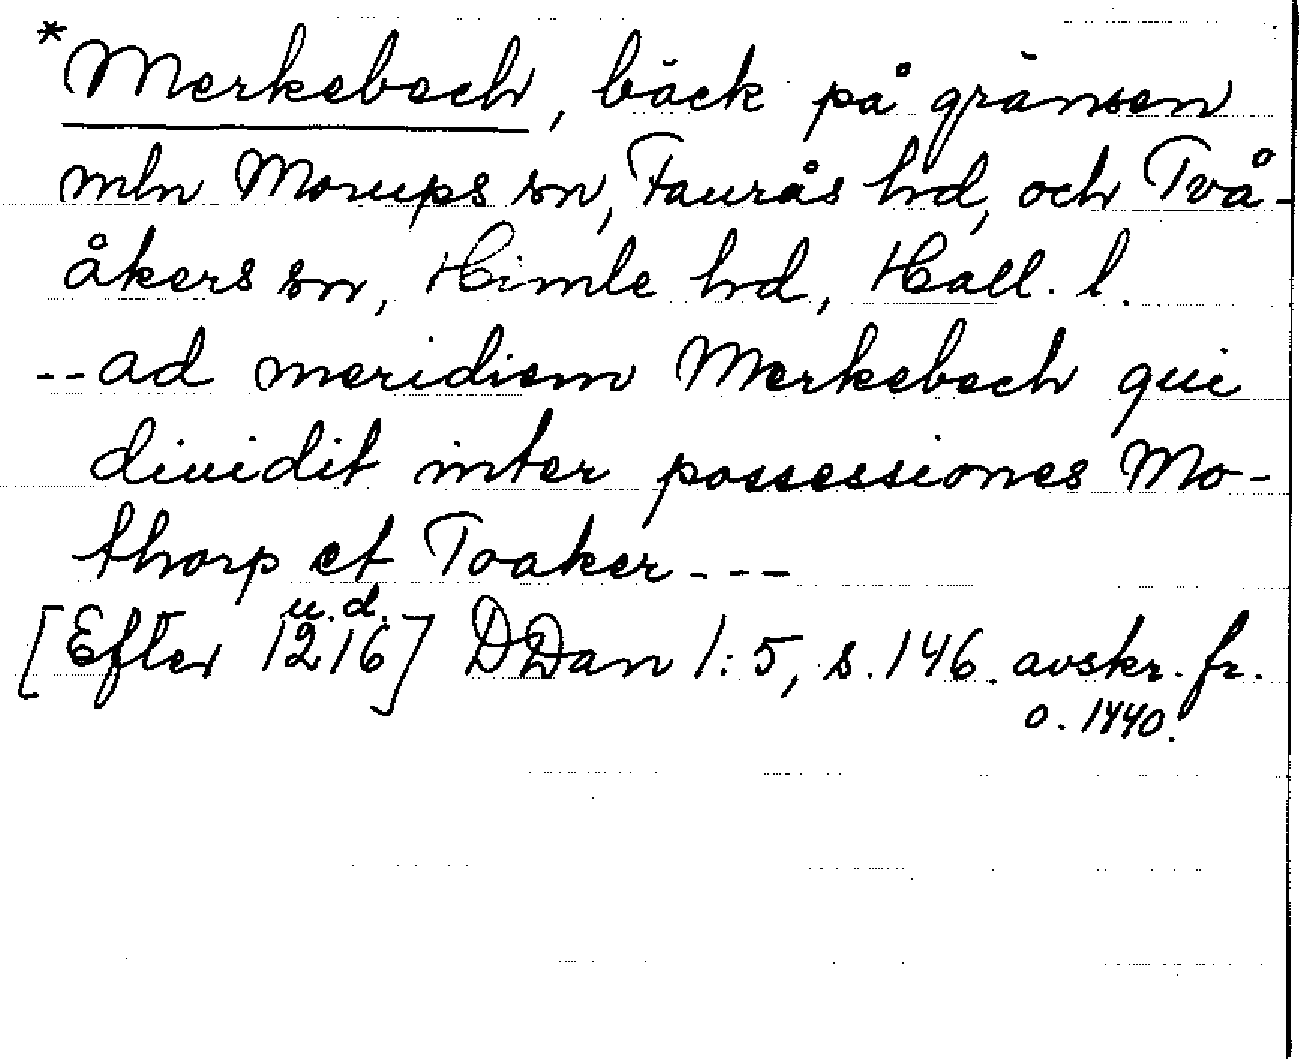 *Merkebech, bäck på gränsen
mln Morups sn, Faurås hd, och Två-
åkers sn, Himle hd, Hall. l.
--ad meridiem Merkebech qui
diuidit inter possessiones Mo-
thorp et Toaker---
u.d.
[Efter 1216] DDan 1:5, s. 146. avskr. fr.
o. 1440.